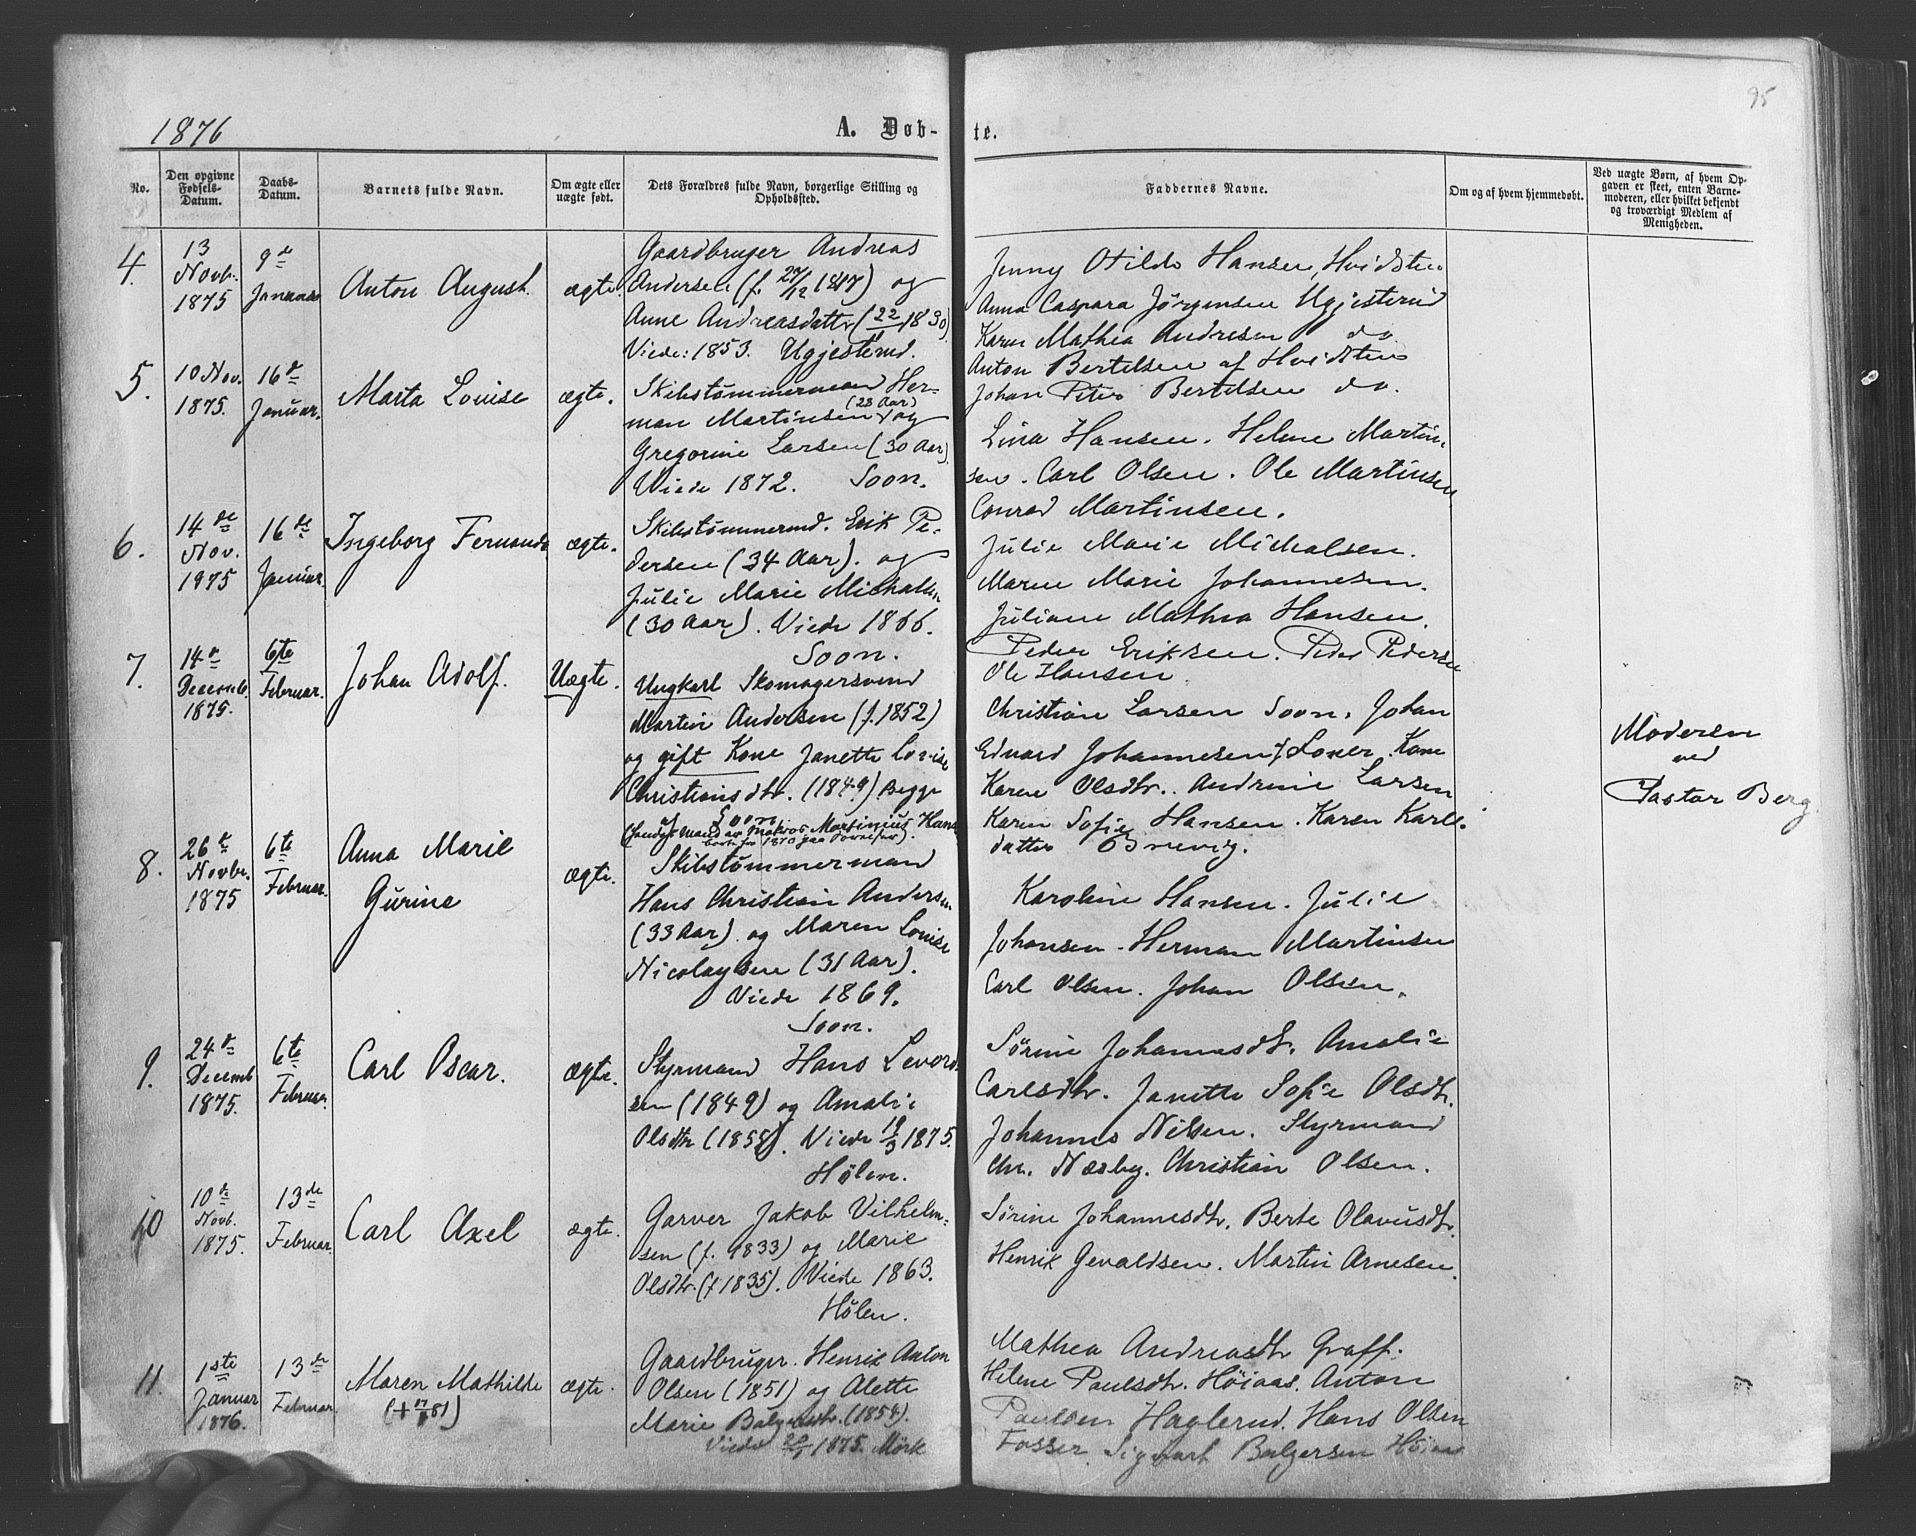 95
1876
A. Døb-
te.
No.
Den opgivne Fødsels-Datum.
Daabs-Datum.
Barnets fulde Navn.
Om ægte eller uægte født.
Dets Forældres fulde Navn, borgerlige Stilling og Opholdssted.
Faddernes Navne.
Om og af hvem hjemmedøbt.
Ved uægte Børn, af hvem Op-
gaven er skeet, enten Barne-
moderen, eller hvilket bekjendt
og troværdigt Medlem af
Menigheden.
4.
13
Novb.
1875
9de
Januar
Anton August.
ægte.
Gaardbruger Andreas
Andersen (f. 27/12 1817) og
Anne Andreasdatter (22/1 1830)
Viede: 1853. Ugjesterud.
Jenny Otilde Hansen, Hvidsten
Anna Caspara Jørgensen Ugjesterud
Karen Mathea Andresen do
Anton Bertelsen af Hvidsten
Johan Peter Bertelsen do.
5.
10 Nov.
1875.
16de
Januar.
Marta Louise
ægte.
Skibstømmermand Her-
man Martinsen (23 Aar) og
Gregorine Larsen (30 Aar)
Viede 1872. Soon.
Lina Hansen. Helene Martin-
sen. Carl Olsen. Ole Martinsen
Conrad Martinsen.
6.
14de
Nov.
1975
16de
Januar.
Ingeborg Fernanda
ægte.
Skibstømmermd. Erik Pe-
dersen (34 Aar). og
Julie Marie Michalsen
(30 Aar). Viede 1866.
Soon.
Julie Marie Michalsen.
Maren Marie Johannesen.
Juliane Mathea Hansen.
Peder Eriksen. Peder Pedersen
Ole Hansen
7.
14de
Decemb.
1875.
6te
Februar.
Johan Adolf.
Uægte.
Ungkarl Skomagersvend
Martin Andersen (f. 1852)
og gift Kone Janette Lovise
Christiansdtr. (1849) Begge
af Soon
Christian Larsen Soon. Johan
Edvard Johannesen Loxer. Kone
Karen Olsdtr. Andrine Larsen
Karen Sofie Hansen. Karen Karls-
datter Brevig.
Moderen
ved
Pastor Berg
8.
26de
Novbr.
1875
6te
Februar.
Anna Marie
Gurine
ægte.
Skibstømmermand
Hans Christian Andersen
(33 Aar). og Maren Lovise
Nicolaysen (31 Aar).
Viede 1869.
Soon.
Karoline Hansen. Julie
Johansen. Herman Martinsen
Carl Olsen. Johan Olsen.
9.
24de
Decemb
1875.
6te
Februar
Carl Oscar.
ægte.
Styrmand Hans Levord-
sen (1849) og Amalie
Olsdtr (1855). Viede 19/3 1875.
Hølen.
Sørine Johannesdtr. Amalie
Carlsdtr. Janette Sofie Olsdtr.
Johannes Nilsen. Styrmand
Chr. Næsby. Christian Olsen.
10
10de
Novb.
1875.
13de
Februar.
Carl Axel
ægte.
Garver Jakob Vilhelm-
sen (f. 1833) og Marie
Olsdtr. (f 1835). Viede 1863.
Hølen.
Sørine Johannesdtr. Berte Olavusdtr.
Henrik Gevaldsen. Martin Arnesen.
11.
1ste
Januar
1876.
13de
Februar
Maren Mathilde
ægte.
Gaardbruger. Henrik Anton
Olsen (1851) og Alette
Marie Bolgersdtr. (1854).
Viede 1875. Mørk
Mathea Andreasdtr Graff.
Helene Paulsdtr. Høiaas. Anton
Paulsen Haglerud. Hans Olsen
Fosser. Sigvart Bolgersen Høiaas